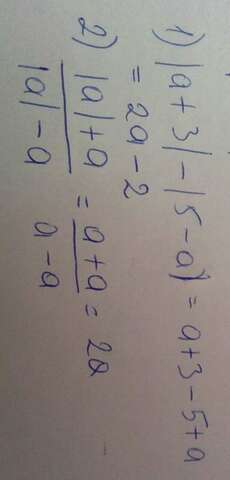 1) |a+3| - |5-a| = a+3-5+a
= 2a-2
2) |a|+a / |a|-a = a+a / a-a = 2a